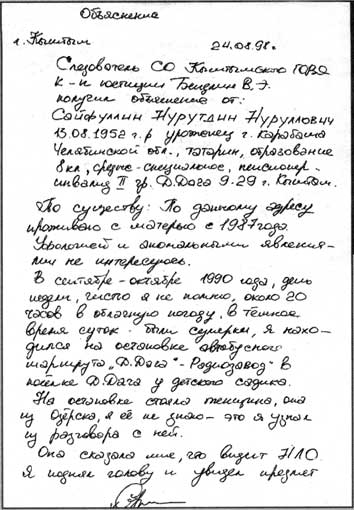 Объяснение
г. Кыштым 24.08.98г.
Следователь СО Кыштымского ГОВД
к-н юстиции Бендлин В.Э.
получил объяснение от:
Сайфуллин Нурутдин Нуруллович
15.08.1952 г.р уроженец г. Карабаша
Челябинской обл., татарин, образование
8 кл, средне-специальное, пенсионер.
инвалид II гр. Д.Дача 9-29 г. Кыштым.
По существу: По данному адресу
проживаю с матерью с 1987 года
Уфологией и аномальными явления-
ми не интересуюсь.
В сентябре-октябре 1990 года, день
недели, число я не помню, около 20
часов в облачную погоду, в тёмное
время суток были сумерки, я нахо-
дился на остановке автобусного
маршрута „Д.Дача"-Радиозавод" в
посёлке Д.Дача у детского садика.
На остановке стояла женщина, она
из Озёрска, я её не знаю - это я узнал
из разговора с ней.
Она сказала мне, что видит НЛО.
Я поднял голову и увидел предмет